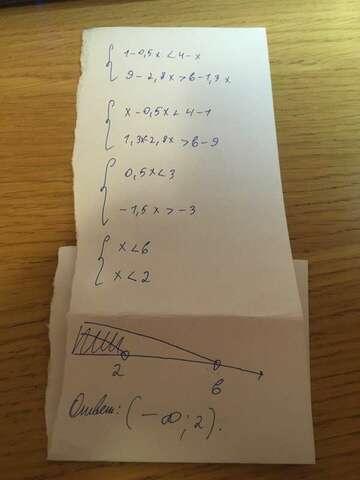 1-0,5x<4-x
9-2,8x>6-1,3x
x-0,5x<4-1
1,3x-2,8x>6-9
0,5x<3
-1,5x>-3
x<6
x<2
2 6
Ответ: (-∞;2).